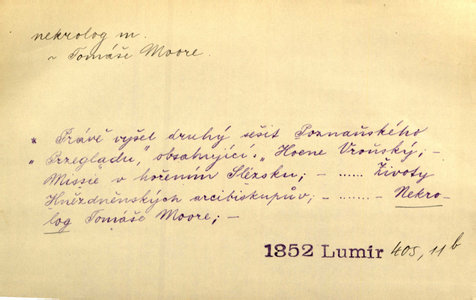 nekrolog m.
~ Tomáše Moore.
* Právě vyšel druhý sešit Poznaňského
„Przegladu,“ obsahující: „Hoene Vroňský; –
Missie v hořením Slézsku; – ...... Životy
Hnězdněnských arcibiskupův; – ...... – Nekro-
log Tomáše Moore; –
1852 Lumír 405, 11 b